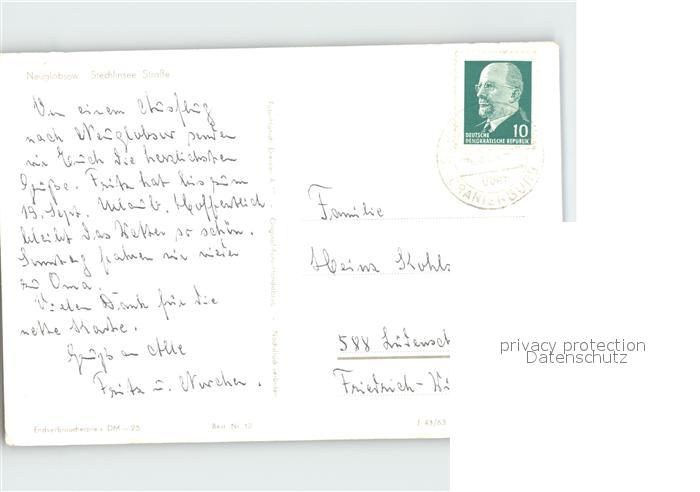 Neuglobsow Stechlinsee Straße
Von einem Ausflug
nach Neuglobsow senden
wir Euch die herzlichsten
Grüße. Fritz hat bis zum
19. Sept. Urlaub. Hoffentlich
bleibt das Wetter so schön.
Sonntag fahren wir wieder
zu Oma.
Vielen Dank für die
nette Karte.
Gruß an Alle
Fritz u.
Endverbraucherpreis DM -.25
Best.-Nr. 12
J 43/63
DEUTSCHE
DEMOKRATISCHE REPUBLIK
10
ORANIENBURG
Familie
Heinz Kohls
588 Lüdensch
Friedrich-Wi
privacy protection
Datenschutz